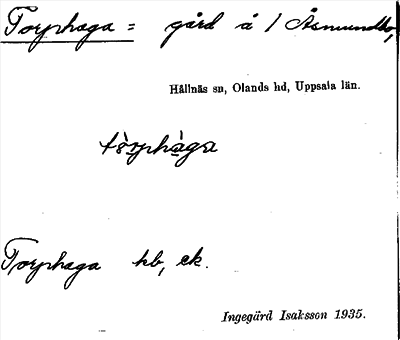 Torphaga = gård å 1 Åsmundbo,
Hållnäs sn, Olands hd, Uppsala län.
tòrphàga
Torphaga hb, ek.
Ingegärd Isaksson 1935.